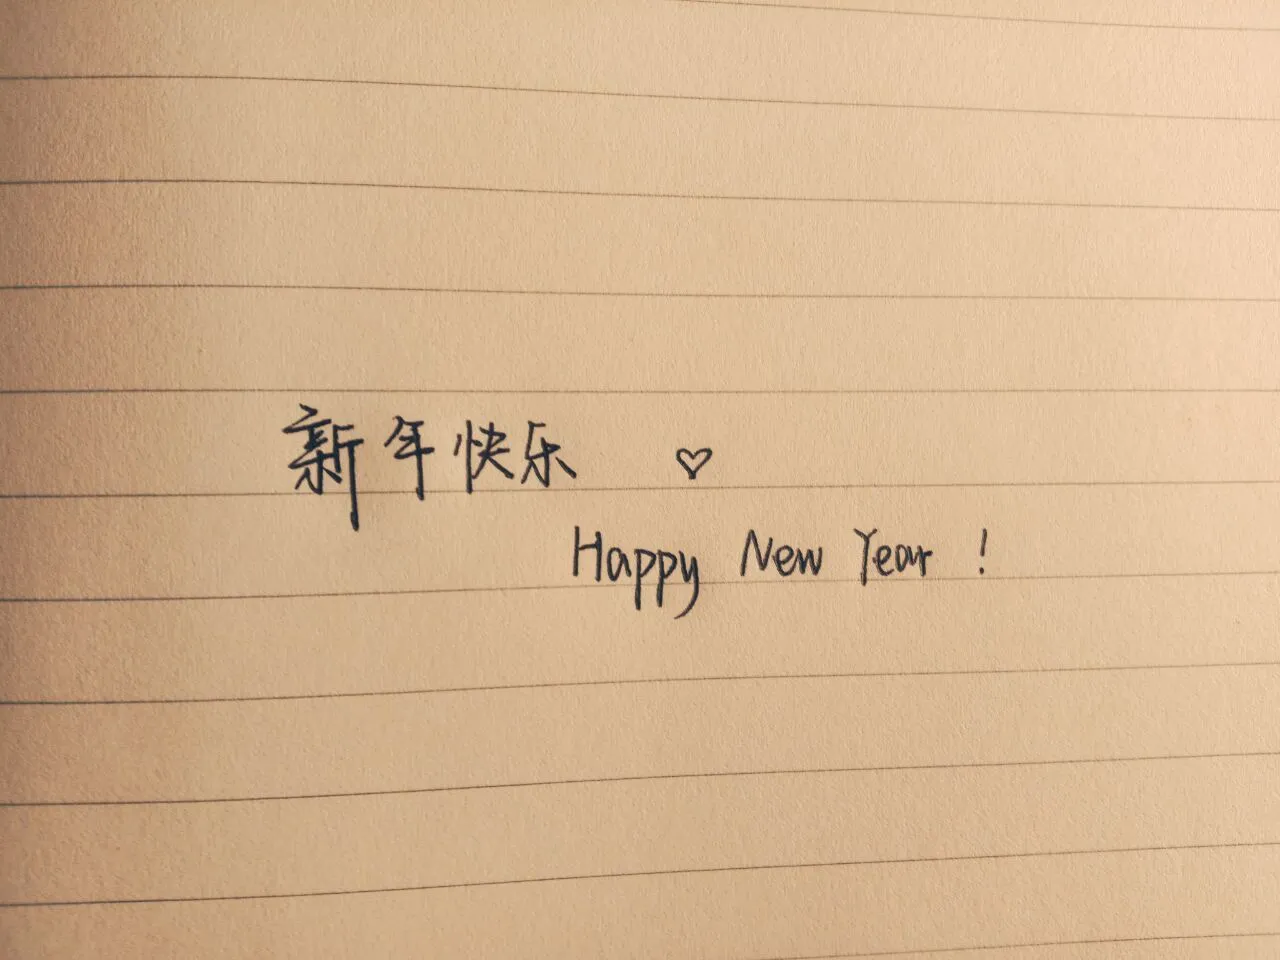 新年快乐 ♡
Happy New Year !